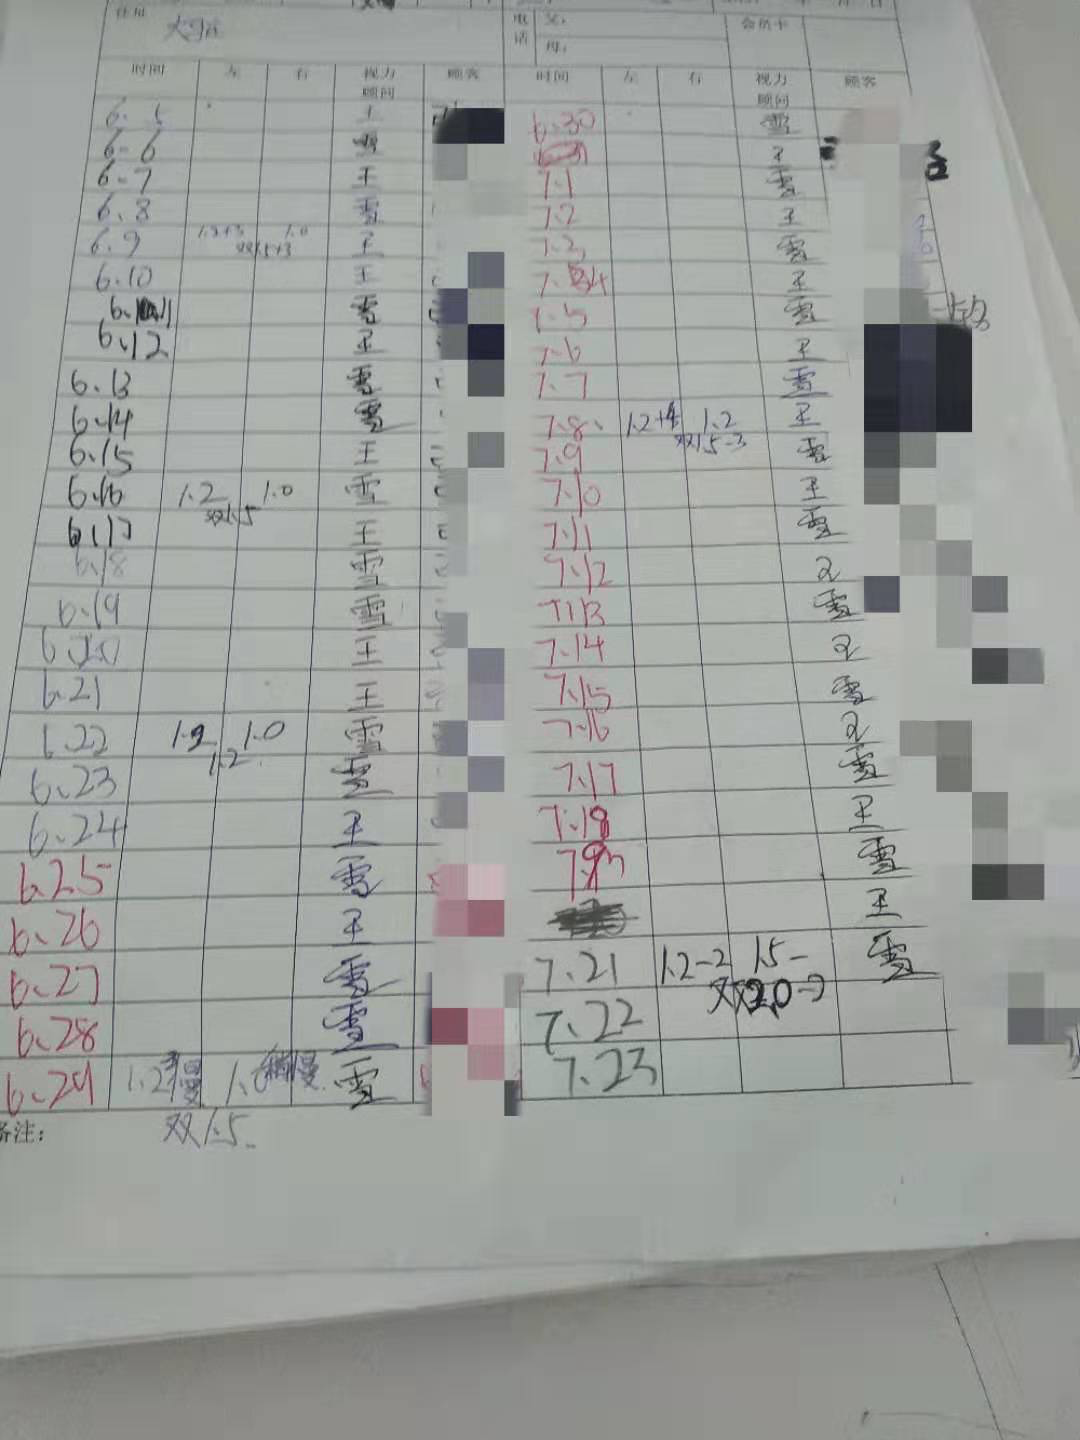 住址
电话 父:
母:
会员卡
时间 左 右 视力顾问 顾客 时间 左 右 视力顾问 顾客
6.5 王 6.30 雪
6.6 雪 王
6.7 王 7.1 雪
6.8 雪 7.2 王
6.9 1.2+3 1.0 王 7.3 雪
双1.5+3
6.10 王 7.4 王
6.11 雪 7.5 雪
6.12 王 7.6 王
6.13 雪 7.7 雪
6.14 雪 7.8. 1.2+4 1.2 王
双1.5-3
6.15 王 7.9 雪
6.16 1.2 1.0 雪 7.10 王
双1.5
6.17 王 7.11 雪
6.18 雪 7.12 王
6.19 雪 7.13 雪
6.20 王 7.14 王
6.21 王 7.15 雪
6.22 1.2 1.0 雪 7.16 王
1.2
6.23 雪 7.17 雪
6.24 王 7.18 王
6.25 雪 雪
6.26 王 王
6.27 雪 7.21 1.2-2 1.5- 雪
双2.0-3
6.28 雪 7.22
6.29 1.2慢 1.0稍慢 雪 7.23
备注: 双1.5